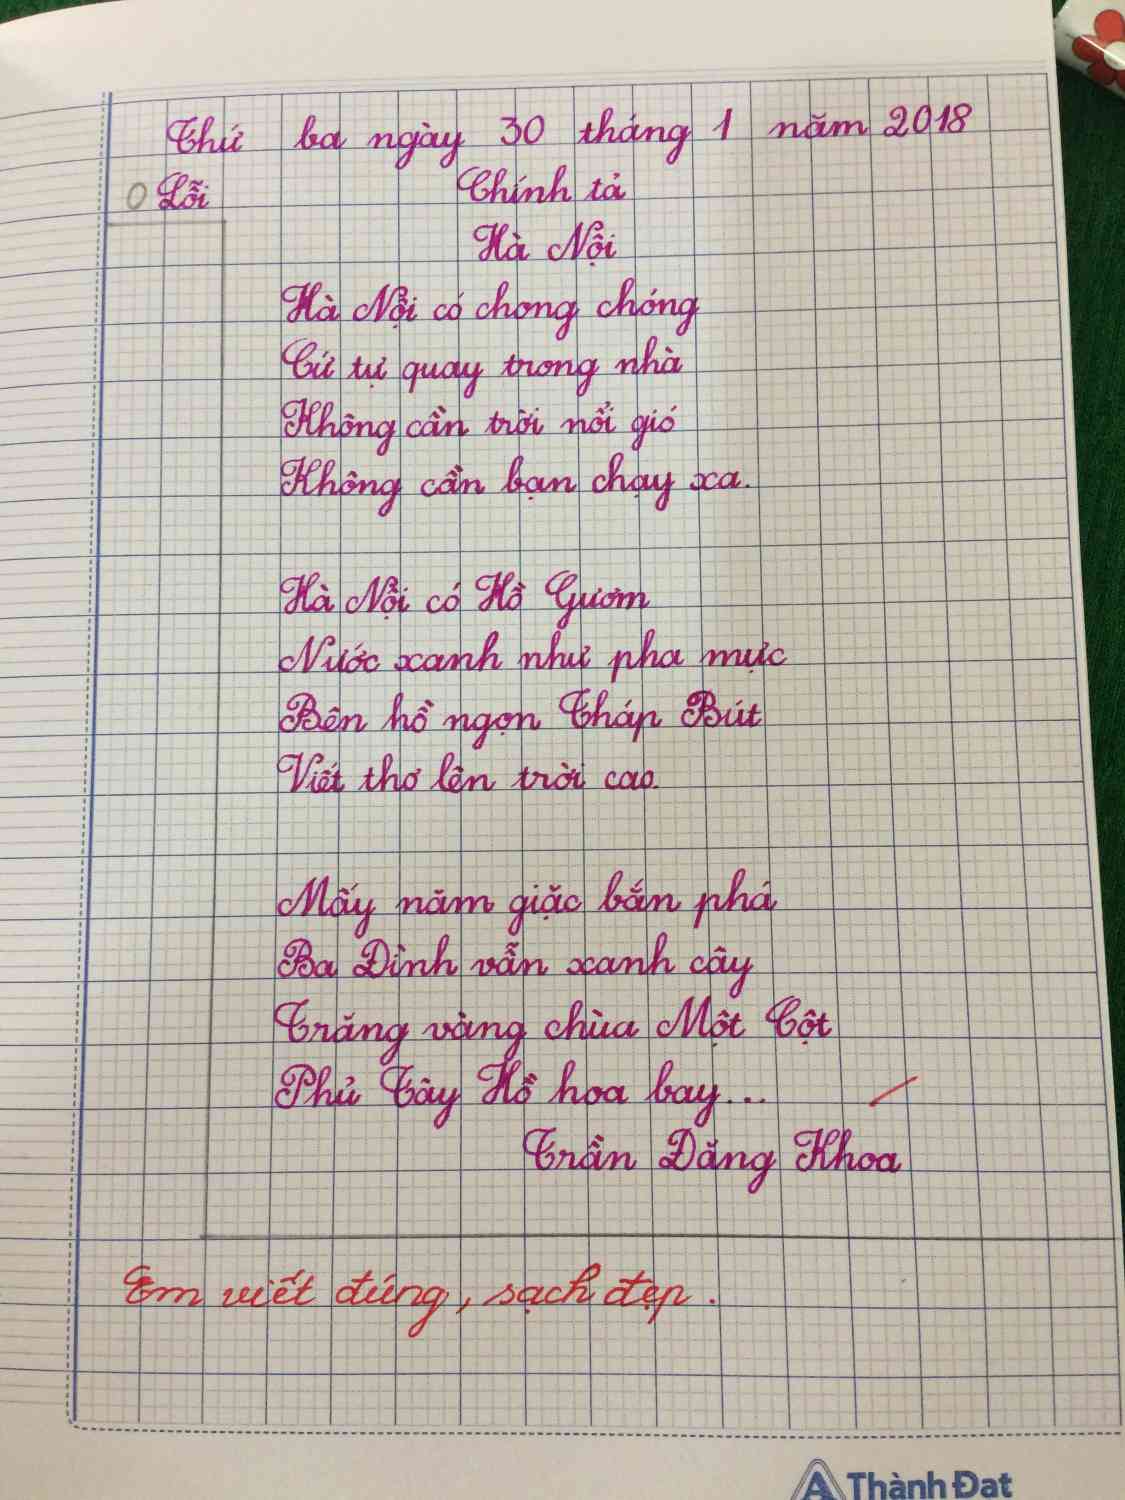 Thứ ba ngày 30 tháng 1 năm 2018
0 Lỗi Chính tả
Hà Nội
Hà Nội có chong chóng
Cứ tự quay trong nhà
Không cần trời nổi gió
Không cần bạn chạy xa.
Hà Nội có Hồ Gươm
Nước xanh như pha mực
Bên hồ ngọn Tháp Bút
Viết thơ lên trời cao.
Mấy năm giặc bắn phá
Ba Đình vẫn xanh cây
Trăng vàng chùa Một Cột
Phủ Tây Hồ hoa bay...
Trần Đăng Khoa
Em viết đúng, sạch đẹp.
Thành Đạt